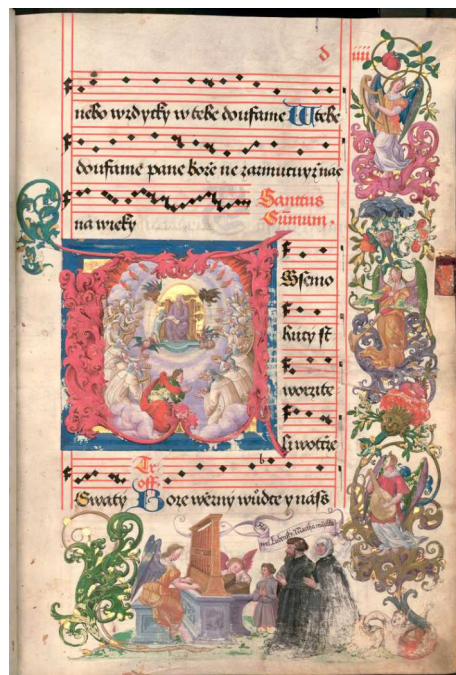 d iiii
nebo wzdycky w tebe doufame W tebe
doufame pane bože ne zarmucuyž nas
Sanctus
Sum̄um.
na wieky
Wssemo
hucy st
worzite
li wotcze
Tr
off.
Swaty Bože wěrny wůdce y náss